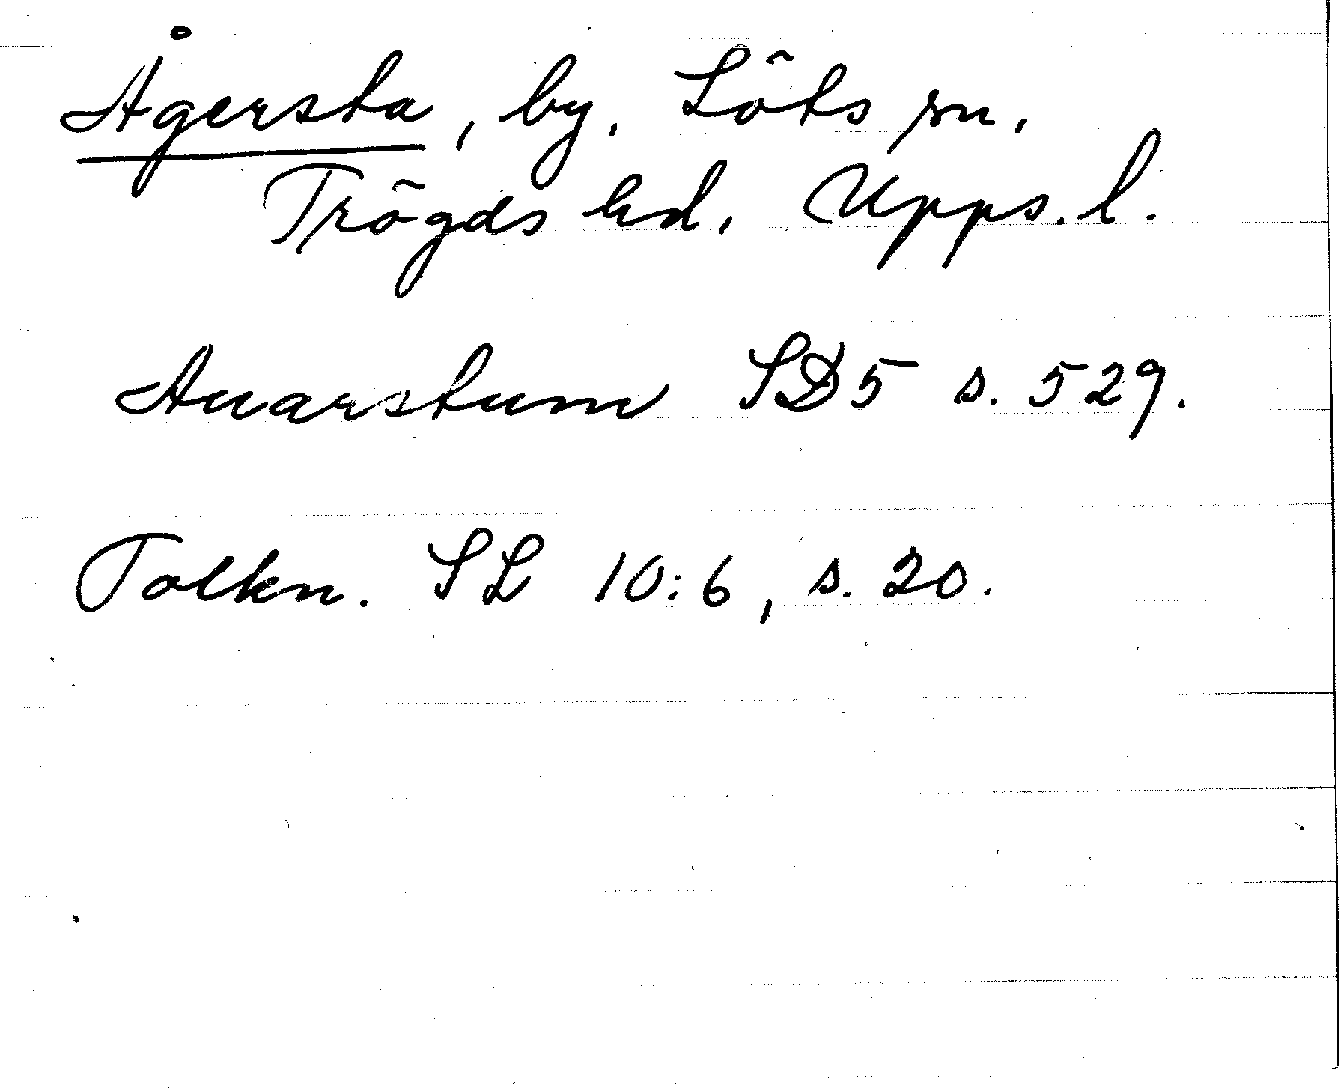 Ågersta, by, Löts sn.
Trögds hd. Upps. l.
Auarstum SD5 s. 529.
Tolkn. SL 10:6, s. 20.